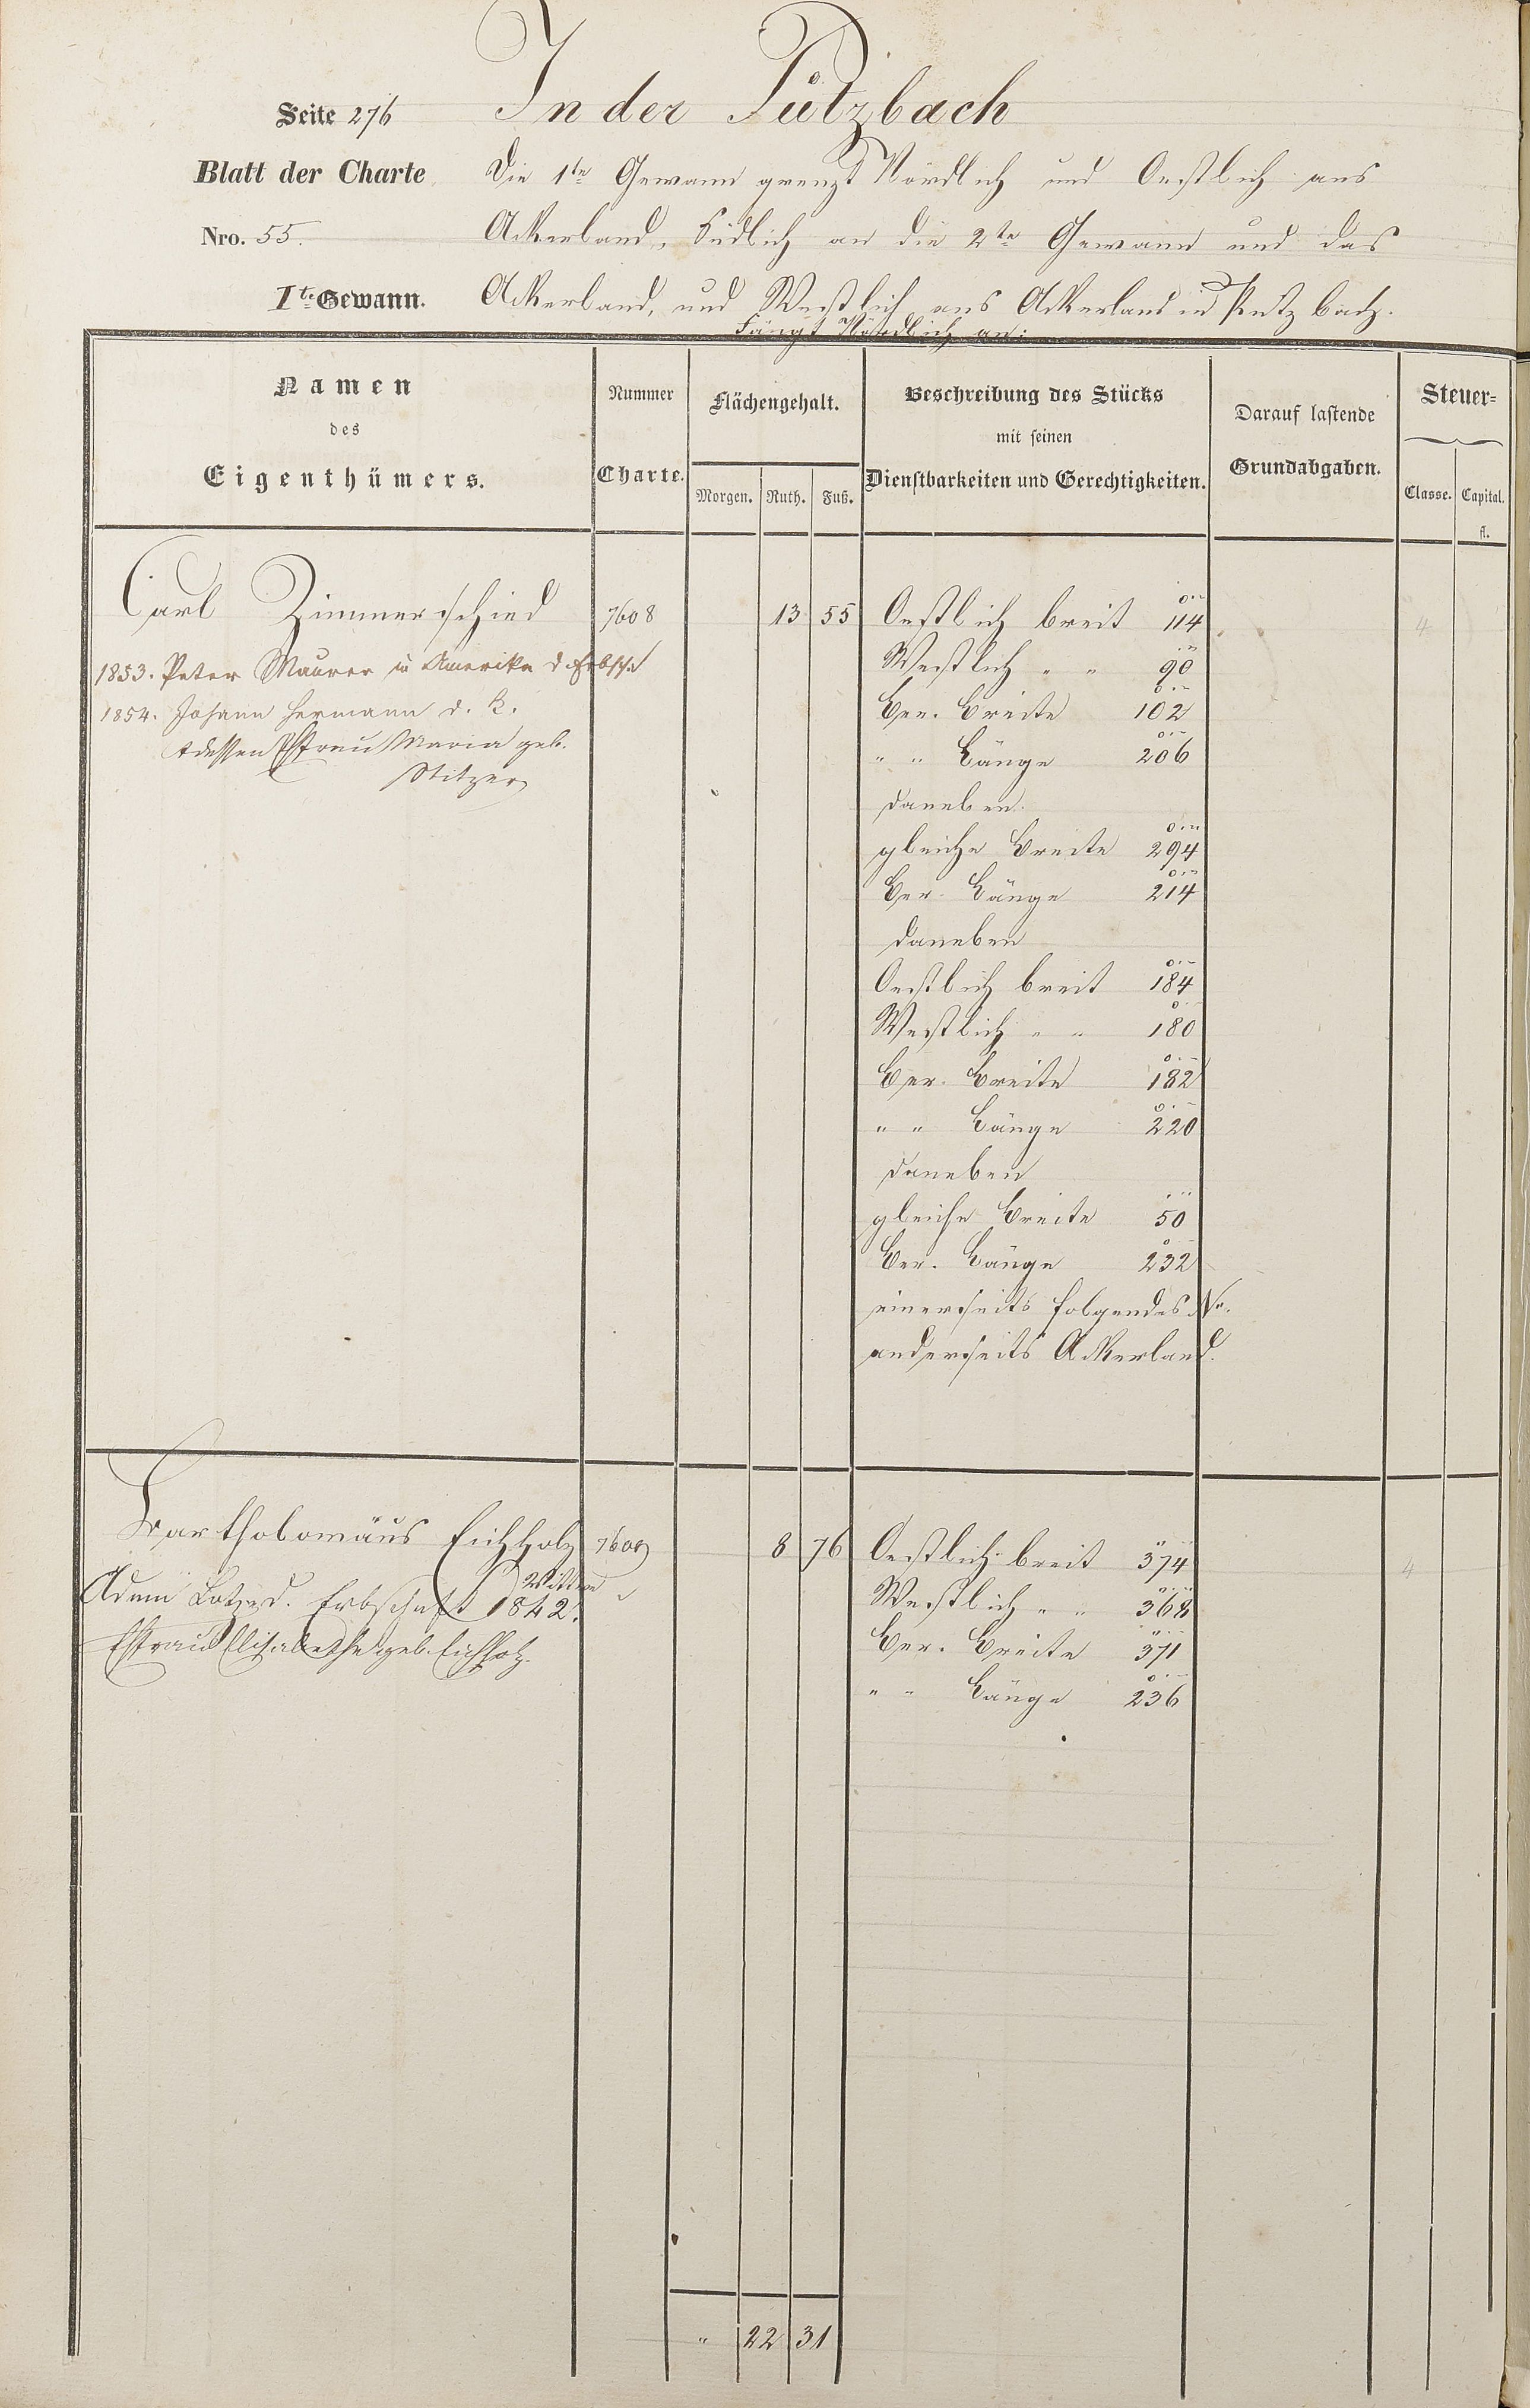 Seite 276 In der Pützbach
Blatt der Charte Die 1te Gewann grenzt Nördlich und Oestlich ans
Nro. 55. Ackerland, Südlich an die 2te Gewann und das
Ite Gewann. Ackerland, und Westlich ans Ackerland in Pützbach.
Fängt Nördlich an:
Namen
des
Eigenthümers.
Nummer
Charte.
Flächengehalt.
Morgen. Ruth. Fuß.
Beschreibung des Stücks
mit seinen
Dienstbarkeiten und Gerechtigkeiten.
Darauf lastende
Grundabgaben.
Steuer-
Classe. Capital.
fl.
Carl Zimmerschied 7608 13 55 Oestlich breit 114 4
1853. Peter Maurer in Amerika d. Erbsch.
1854. Johann Hermann d. K.
dessen Ehefrau Maria geb.
Stitzer
Westlich " " 90
Ber. Breite 102
" " Länge 206
daneben
gleiche Breite 294
Ber. Länge 214
daneben
Oestlich breit 184
Westlich " " 180
Ber. Breite 182
" " Länge 220
daneben
gleiche Breite 50
Ber. Länge 232
einerseits folgendes No.
anderseits Ackerland.
Bartholomäus Eichholz 7609 8 76 Oestlich breit 374 4
Wittwe
Adam d. Erbschaft 1842.
Ehefrau Elisabethe geb. Eichholz.
Westlich " " 368
Ber. Breite 371
" " Länge 236
" 22 31